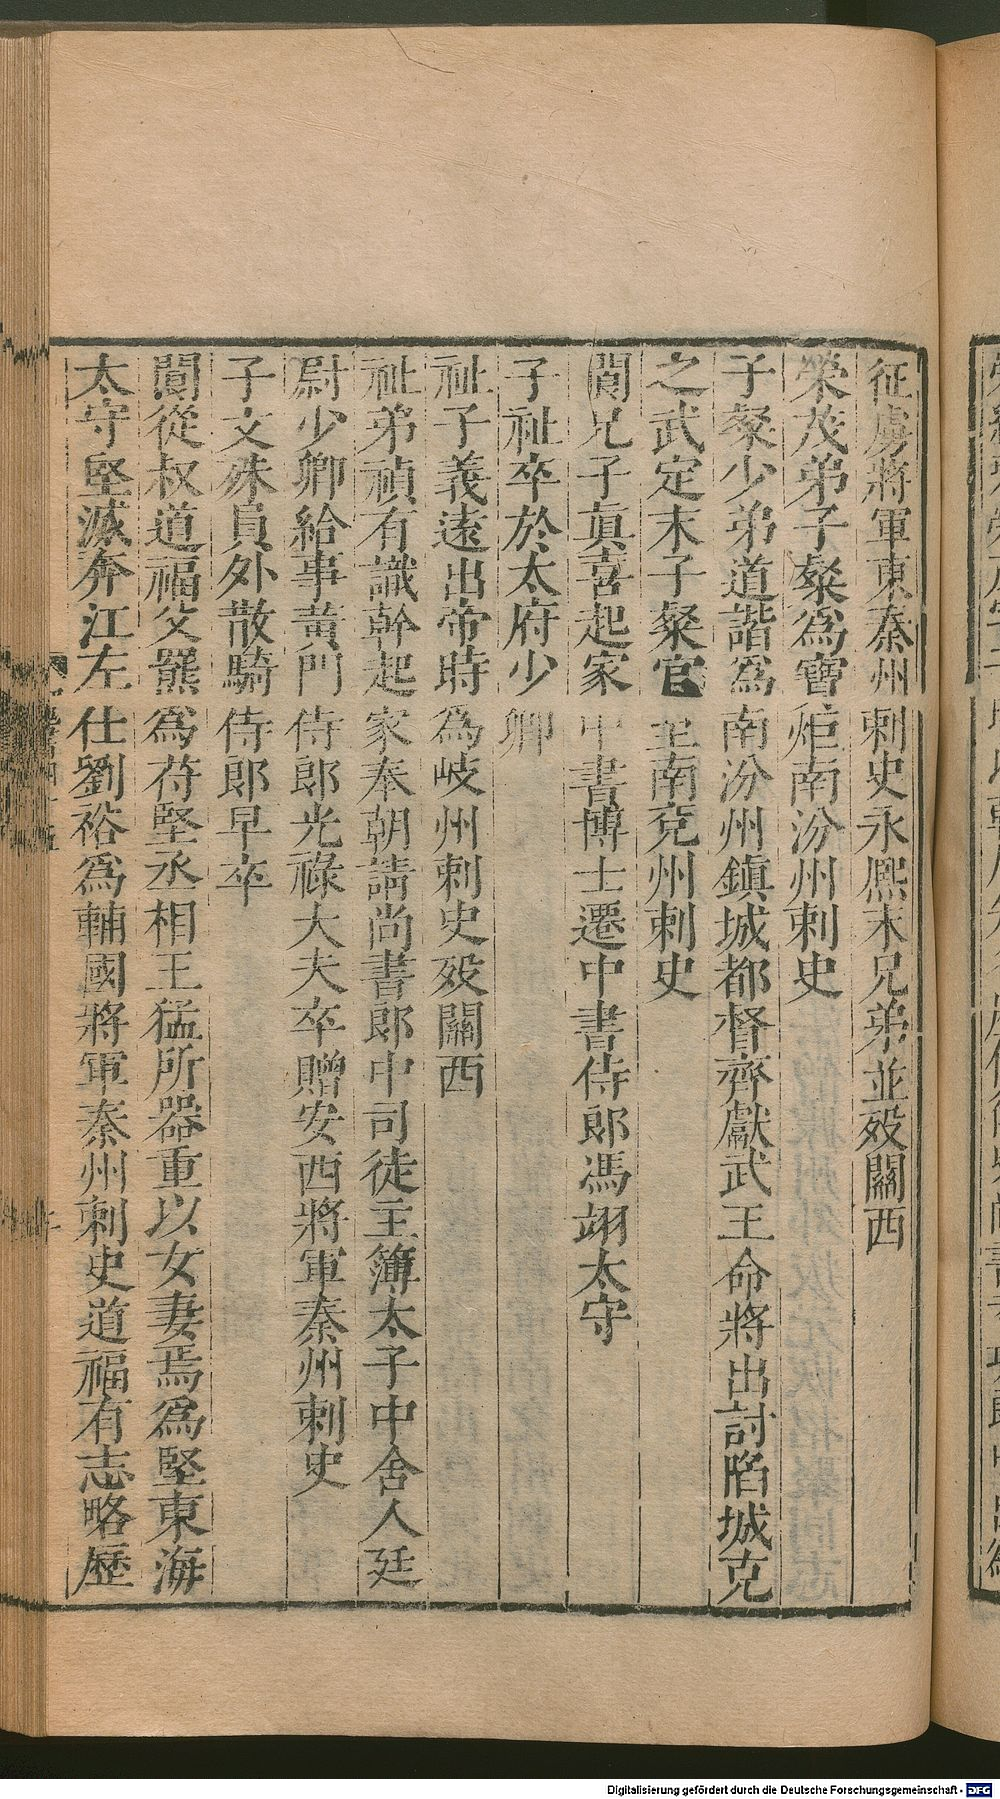 征虜將軍東秦州刺史永熙末兄弟並歿關西
榮茂弟子粲爲寶炬南汾州刺史
子粲少弟道諧爲南汾州鎮城都督齊獻武王命將出討陷城克
之武定末子粲官至南兗州刺史
閬兄子真喜起家中書博士遷中書侍郎馮翊太守
子祉卒於太府少卿
祉子義遠出帝時爲岐州刺史歿關西
祉弟禎有識幹起家奉朝請尚書郎中司徒主簿太子中舍人廷
尉少卿給事黃門侍郎光祿大夫卒贈安西將軍秦州刺史
子文殊員外散騎侍郎早卒
閬從叔道福父羆爲苻堅丞相王猛所器重以女妻焉爲堅東海
太守堅滅奔江左仕劉裕爲輔國將軍秦州刺史道福有志略歷
Digitalisierung gefördert durch die Deutsche Forschungsgemeinschaft - DFG